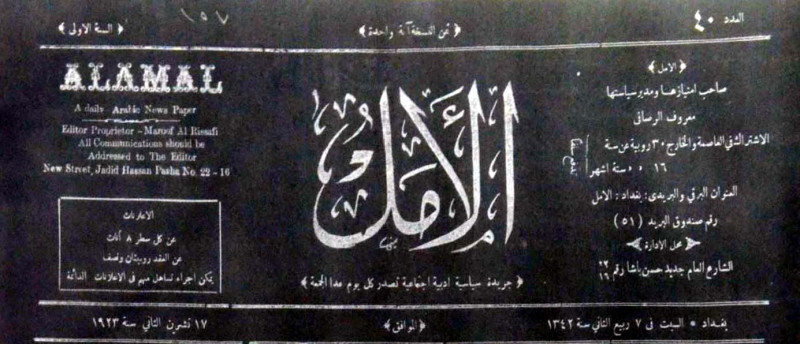 العدد ٤٠
﴿ ثمن النسخة آنة واحدة ﴾
﴿ السنة الاولى ﴾
١٥٧
﴿ الامل ﴾
صاحب امتيازها ومدير سياستها
معروف الرصافي
الاشتراك في العاصمة والخارج ٣٠ روبية عن سنة
١٦ ٠ ٠ ستة اشهر
العنوان البرقي والبريدى: بغداد: الامل
رقم صندوق البريد (٥١)
﴿ محل الادارة ﴾
الشارع العام جديد حسن باشا رقم ٢٢/١٦
الأمل
﴿ جريدة سياسية ادبية اجتماعية تصدر كل يوم عدا الجمعة ﴾
ALAMAL
A daily Arabic News Paper
Editor Proprietor - Maroof Al Rissafi
All Communications should be
Addressed to The Editor
New Street, Jadid Hassan Pasha No. 22 - 16
الاعلانات
عن كل سطر ٨ آنات
عن العقد روبيتان ونصف
يمكن اجراء تساهل مهم فى الاعلانات الدائمة
بغداد • السبت فى ٧ ربيع الثاني سنة ١٣٤٢
﴿ الموافق ﴾
١٧ تشرين الثاني سنة ١٩٢٣